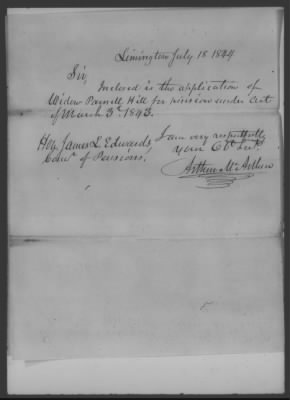 Limington July 18 1844
Sir,
Inclosed is the application of
Widow Parnell Hill for pension under Act
of March 3d. 1843.
I am very respectfully
your Obt. Sert.
Arthur McArthur
Hon. James L. Edwards,
Comr. of Pensions,